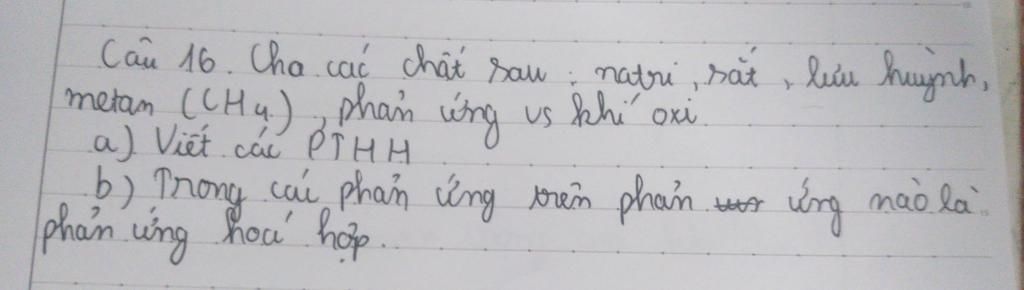 Câu 16. Cho các chất sau: natri, sắt, lưu huỳnh,
metan (CH4), phản ứng vs khí oxi
a) Viết các PTHH
b) Trong các phản ứng trên phản ứng nào là
phản ứng hoá hợp.